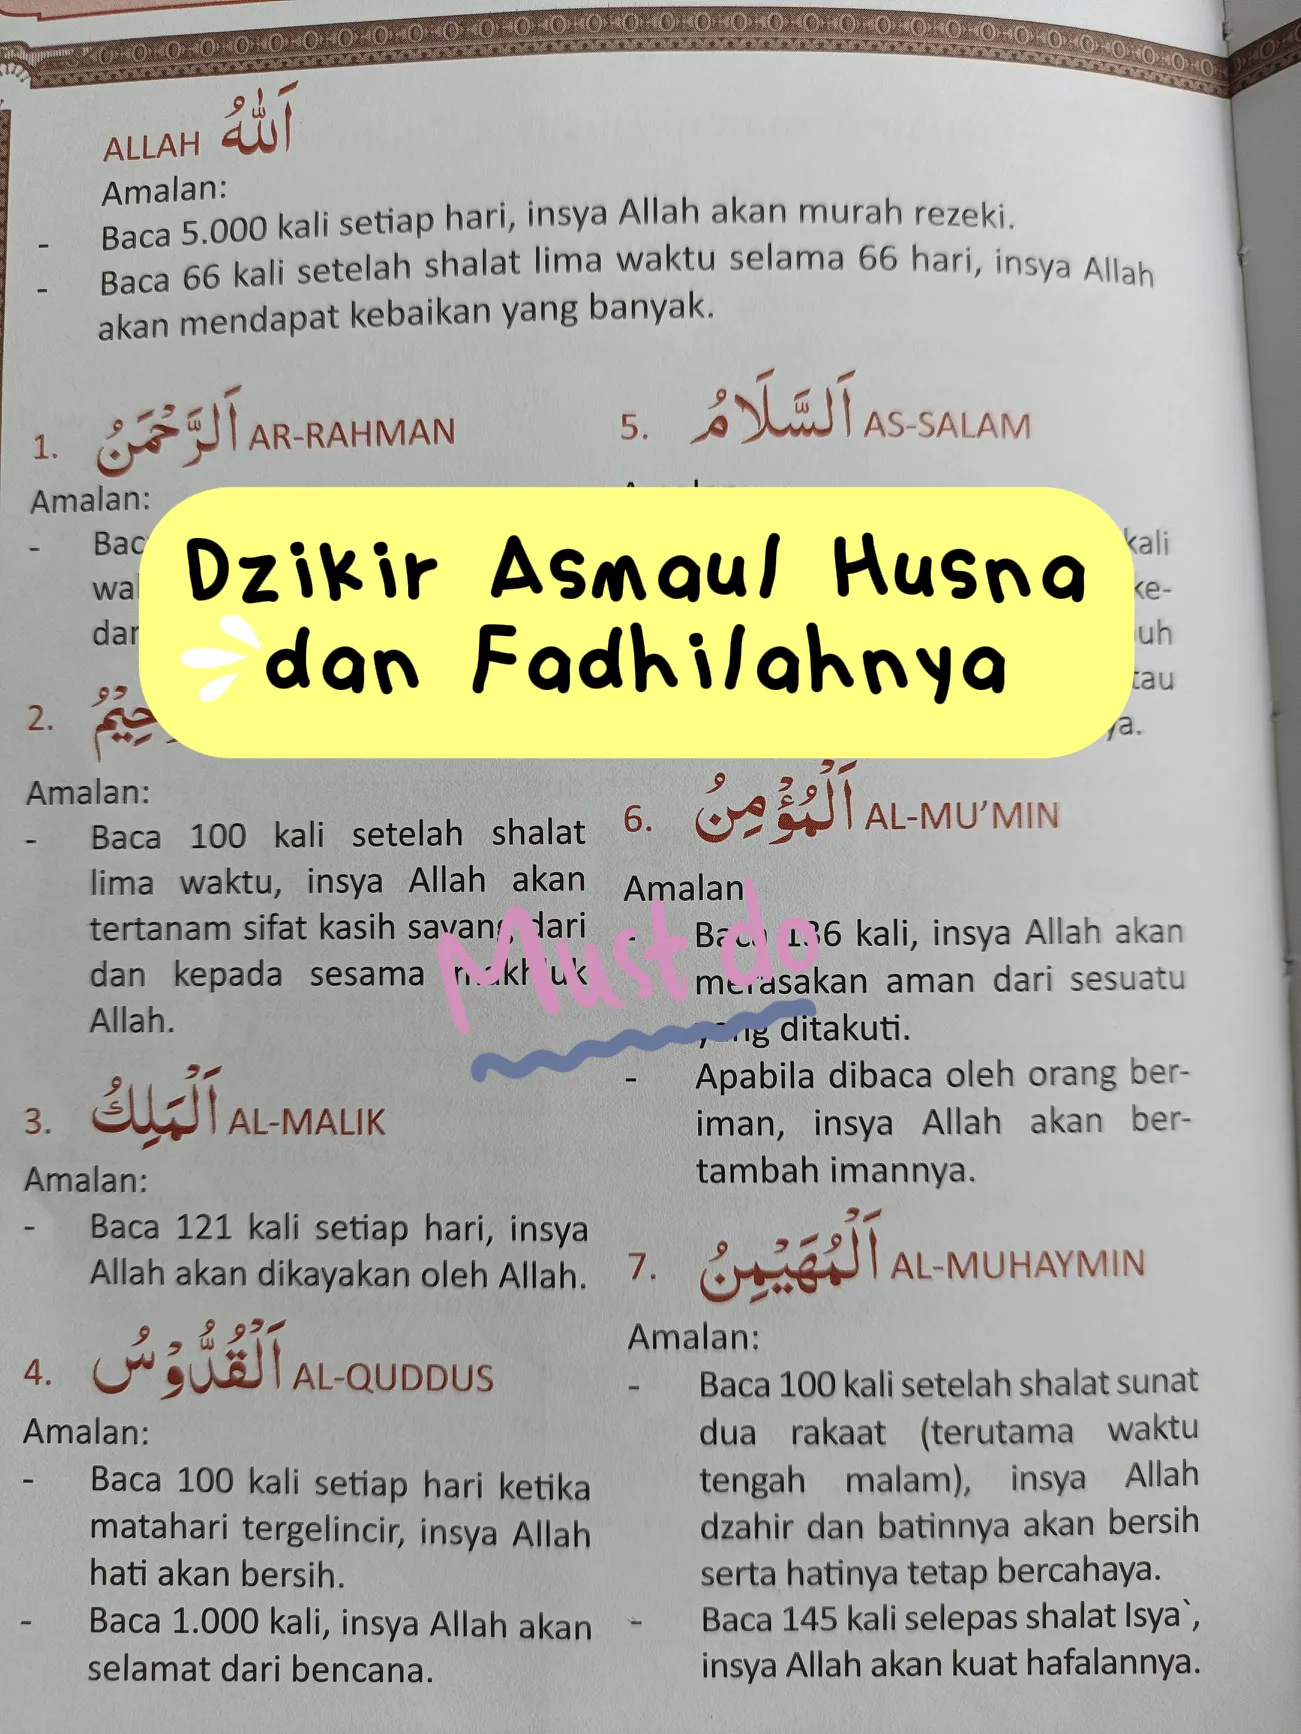 ALLAH اَللّٰهُ
Amalan:
- Baca 5.000 kali setiap hari, insya Allah akan murah rezeki.
- Baca 66 kali setelah shalat lima waktu selama 66 hari, insya Allah
akan mendapat kebaikan yang banyak.
1. اَلرَّحْمَنُ AR-RAHMAN
Amalan:
-
Dzikir Asmaul Husna
dan Fadhilahnya
2.
Amalan:
- Baca 100 kali setelah shalat
lima waktu, insya Allah akan
tertanam sifat kasih sayang dari
dan kepada sesama makhluk
Allah.
3. اَلْمَلِكُ AL-MALIK
Amalan:
- Baca 121 kali setiap hari, insya
Allah akan dikayakan oleh Allah.
4. اَلْقُدُّوْسُ AL-QUDDUS
Amalan:
- Baca 100 kali setiap hari ketika
matahari tergelincir, insya Allah
hati akan bersih.
- Baca 1.000 kali, insya Allah akan
selamat dari bencana.
5. اَلسَّلَامُ AS-SALAM
kali
6. اَلْمُؤْمِنُ AL-MU’MIN
Amalan
- Baca 136 kali, insya Allah akan
merasakan aman dari sesuatu
yang ditakuti.
- Apabila dibaca oleh orang ber-
iman, insya Allah akan ber-
tambah imannya.
Must do
7. اَلْمُهَيْمِنُ AL-MUHAYMIN
Amalan:
- Baca 100 kali setelah shalat sunat
dua rakaat (terutama waktu
tengah malam), insya Allah
dzahir dan batinnya akan bersih
serta hatinya tetap bercahaya.
- Baca 145 kali selepas shalat Isya`,
insya Allah akan kuat hafalannya.